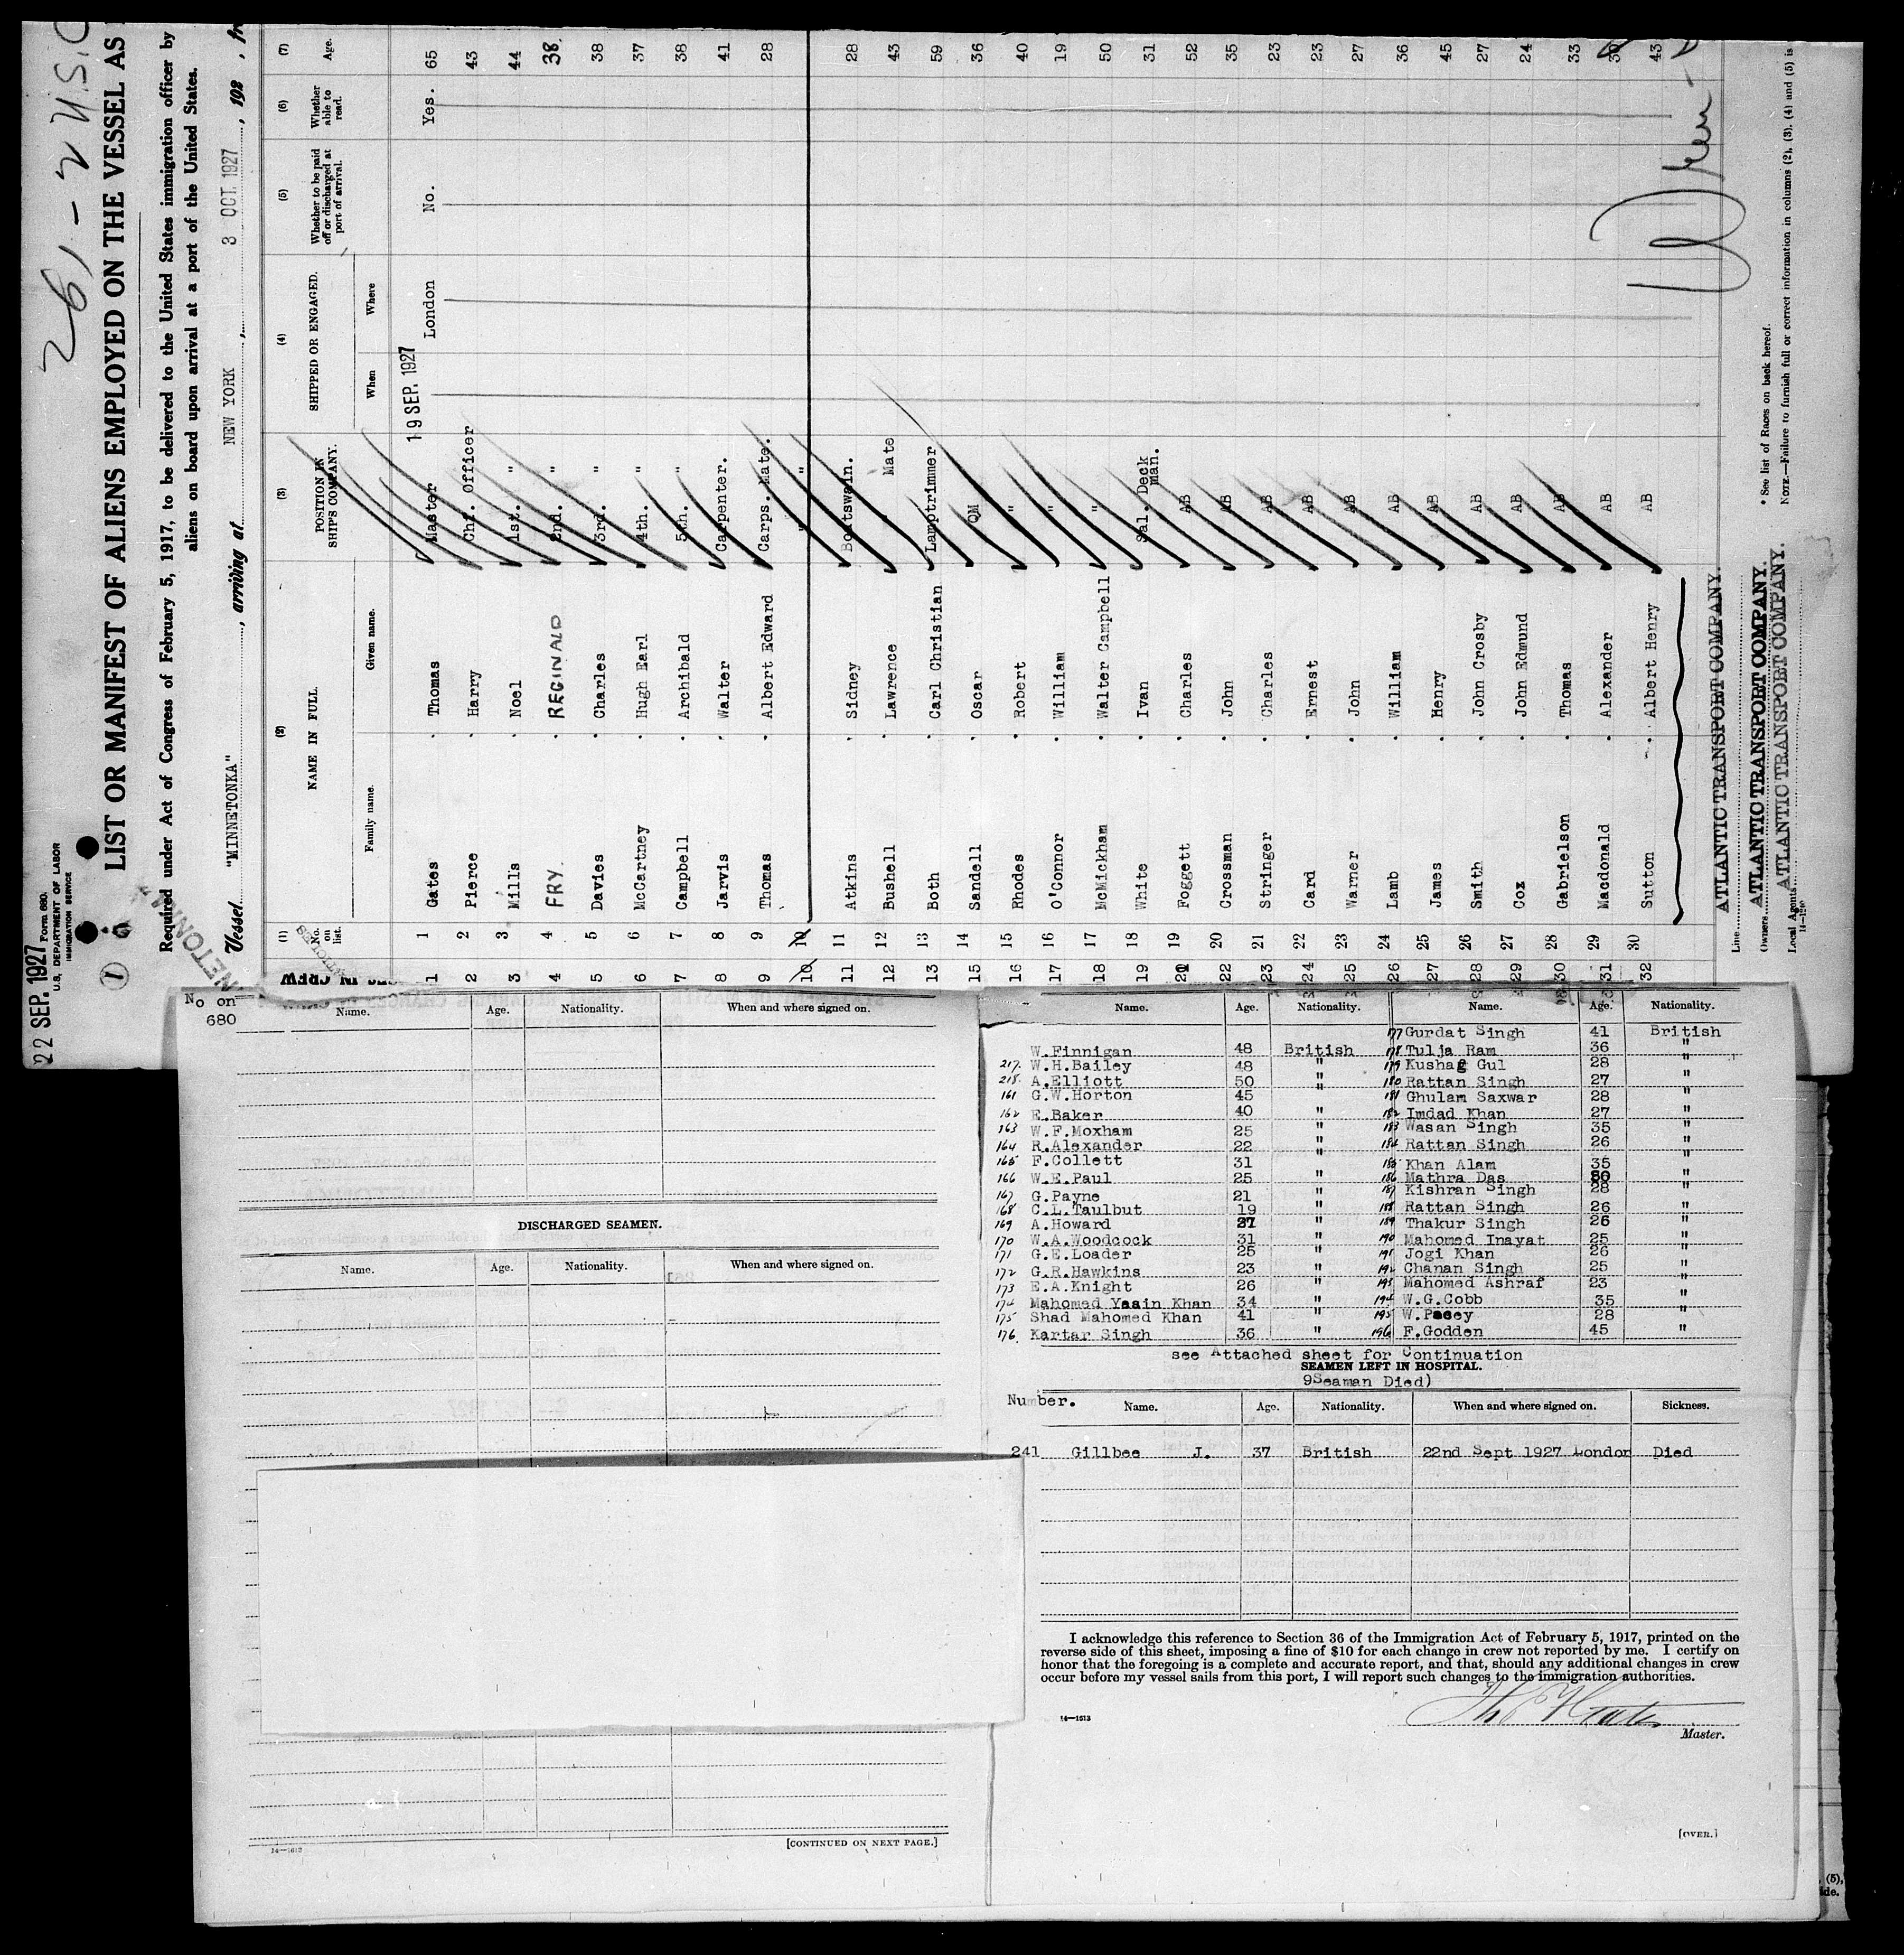 22 SEP. 1927
Form 680.
U.S. DEPARTMENT OF LABOR
IMMIGRATION SERVICE
261 - 2 U.S.C
1
LIST OR MANIFEST OF ALIENS EMPLOYED ON THE VESSEL AS
Required under Act of Congress of February 5, 1917, to be delivered to the United States immigration officer by
aliens on board upon arrival at a port of the United States.
Vessel "MINNETONKA", arriving at NEW YORK, 3 OCT. 1927, 192
(1) (2) (3) (4) (5) (6) (7)
No. on list. NAME IN FULL. POSITION IN SHIP'S COMPANY. SHIPPED OR ENGAGED. Whether to be paid off or discharged at port of arrival. Whether able to read. Age.
Family name. Given name. When Where
19 SEP. 1927
1 1 Gates Thomas Master London No. Yes. 65
2 2 Pierce Harry Chf. Officer 43
3 3 Mills Noel 1st. " 44
4 4 FRY. REGINALD 2nd. " 38.
5 5 Davies Charles 3rd. " 38
6 6 McCartney Hugh Earl 4th. " 37
7 7 Campbell Archibald 5th. " 38
8 8 Jarvis Walter Carpenter. 41
9 9 Thomas Albert Edward Carps. Mate. 28
10 10 " "
11 11 Atkins Sidney Boatswain. 28
12 12 Bushell Lawrence " Mate 43
13 13 Both Carl Christian Lamptrimmer 59
15 14 Sandell Oscar QM 36
16 15 Rhodes Robert " 40
17 16 O'Connor William " 19
18 17 McMickham Walter Campbell " 50
19 18 White Ivan Sal. Deck man. 31
19 Foggett Charles AB 52
22 20 Crossman John AB 35
23 21 Stringer Charles AB 23
24 22 Card Ernest AB 23
25 23 Warner John AB 27
26 24 Lamb William AB 36
27 25 James Henry AB 45
28 26 Smith John Crosby AB 27
29 27 Cox John Edmund AB 24
30 28 Gabrielson Thomas AB 33
31 29 Macdonald Alexander AB
32 30 Sutton Albert Henry AB 43
Line ATLANTIC TRANSPORT COMPANY.
Owners ATLANTIC TRANSPORT COMPANY.
Local Agents ATLANTIC TRANSPORT COMPANY.
14-1240
* See list of Races on back hereof.
NOTE.—Failure to furnish full or correct information in columns (2), (3), (4) and (5) is
No on
680
Name. Age. Nationality. When and where signed on.
DISCHARGED SEAMEN.
Name. Age. Nationality. When and where signed on.
[CONTINUED ON NEXT PAGE.]
14—1613
Name. Age. Nationality. Name. Age. Nationality.
177 Gurdat Singh 41 British
W.Finnigan 48 British 178 Tulja Ram 36 "
217. W.H.Bailey 48 " 179 Kushag Gul 28 "
218. A.Elliott 50 " 180 Rattan Singh 27 "
161 G.W.Horton 45 181 Ghulam Saxwar 28 "
162 E.Baker 40 " 182 Imdad Khan 27 "
163 W.F.Moxham 25 " 183 Wasan Singh 35 "
164 R.Alexander 22 " 184 Rattan Singh 26 "
165 F.Collett 31 " 185 Khan Alam 35 "
166 W.E.Paul 25 " 186 Mathra Das "
167 G.Payne 21 " 187 Kishran Singh 28 "
168 C.L.Taulbut 19 " 188 Rattan Singh 26 "
169 A.Howard " 189 Thakur Singh 26 "
170 W.A.Woodcock 31 " 190 Mahomed Inayat 25 "
171 G.E.Loader 25 " 191 Jogi Khan 26 "
172 G.R.Hawkins 23 " 192 Chanan Singh 25 "
173 E.A.Knight 26 " 193 Mahomed Ashraf 23 "
174 Mahomed Yaain Khan 34 " 194 W.G.Cobb 35 "
175 Shad Mahomed Khan 41 " 195 W.Pacey 28 "
176. Kartar Singh 36 " 196 F.Godden 45 "
see Attached sheet for Continuation
SEAMEN LEFT IN HOSPITAL.
9Seaman Died)
Number. Name. Age. Nationality. When and where signed on. Sickness.
241 Gillbee J. 37 British 22nd Sept 1927 London Died
I acknowledge this reference to Section 36 of the Immigration Act of February 5, 1917, printed on the
reverse side of this sheet, imposing a fine of $10 for each change in crew not reported by me. I certify on
honor that the foregoing is a complete and accurate report, and that, should any additional changes in crew
occur before my vessel sails from this port, I will report such changes to the immigration authorities.
14—1613
Master.
[OVER.]